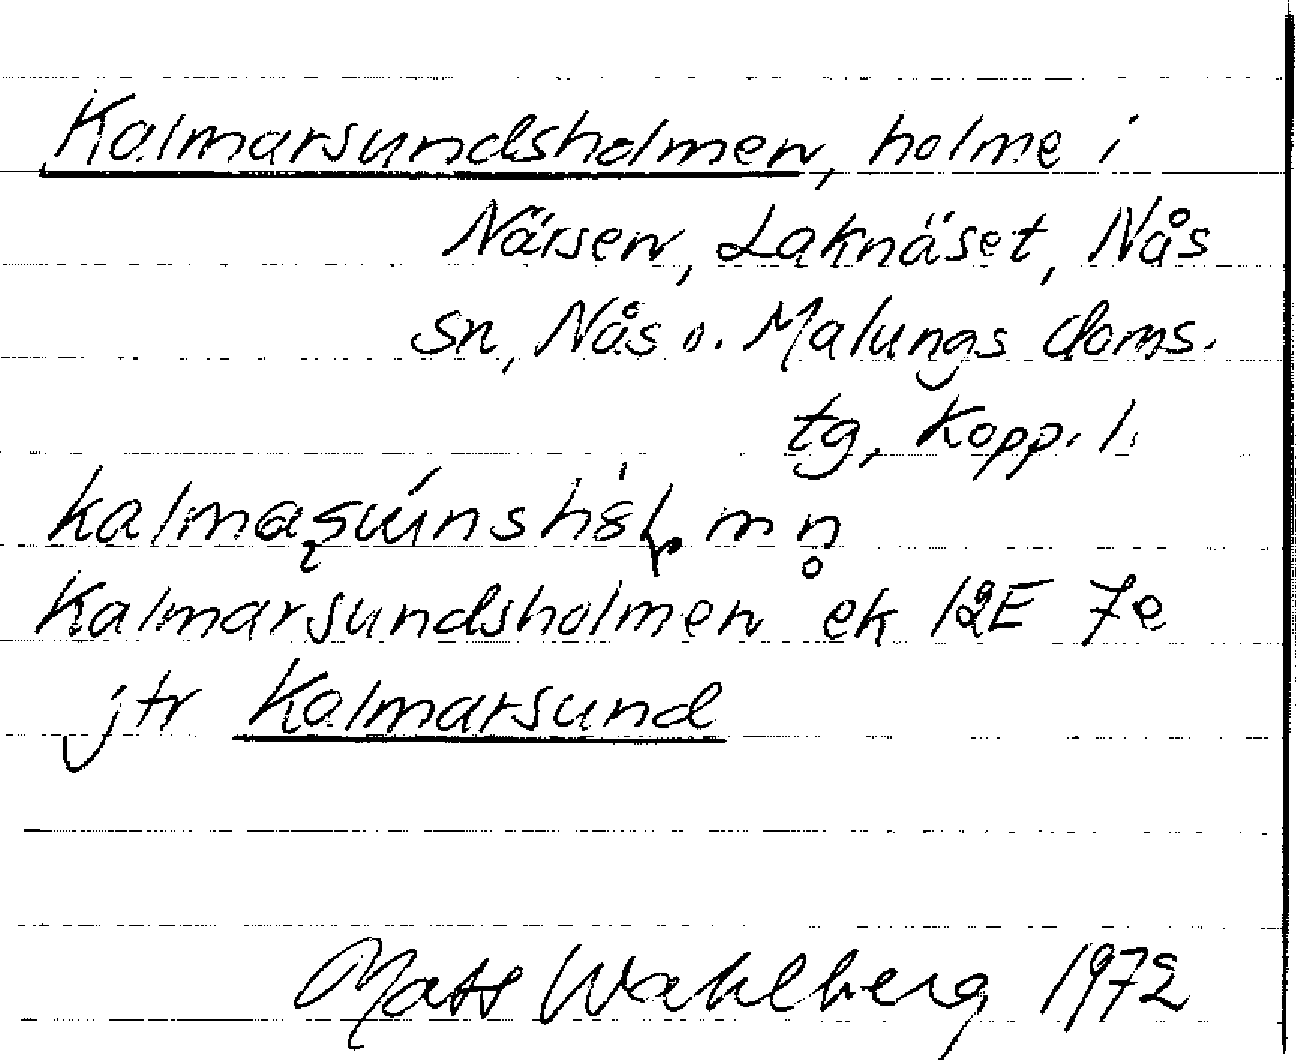 Kalmarsundsholmen, holme i
Närsen, Laknäset, Nås
sn, Nås o. Malungs doms.
tg, Kopp. l.
Kalmarsundsholmen ek 12E 7e
jtr Kalmarsund
Mats Wahlberg 1972